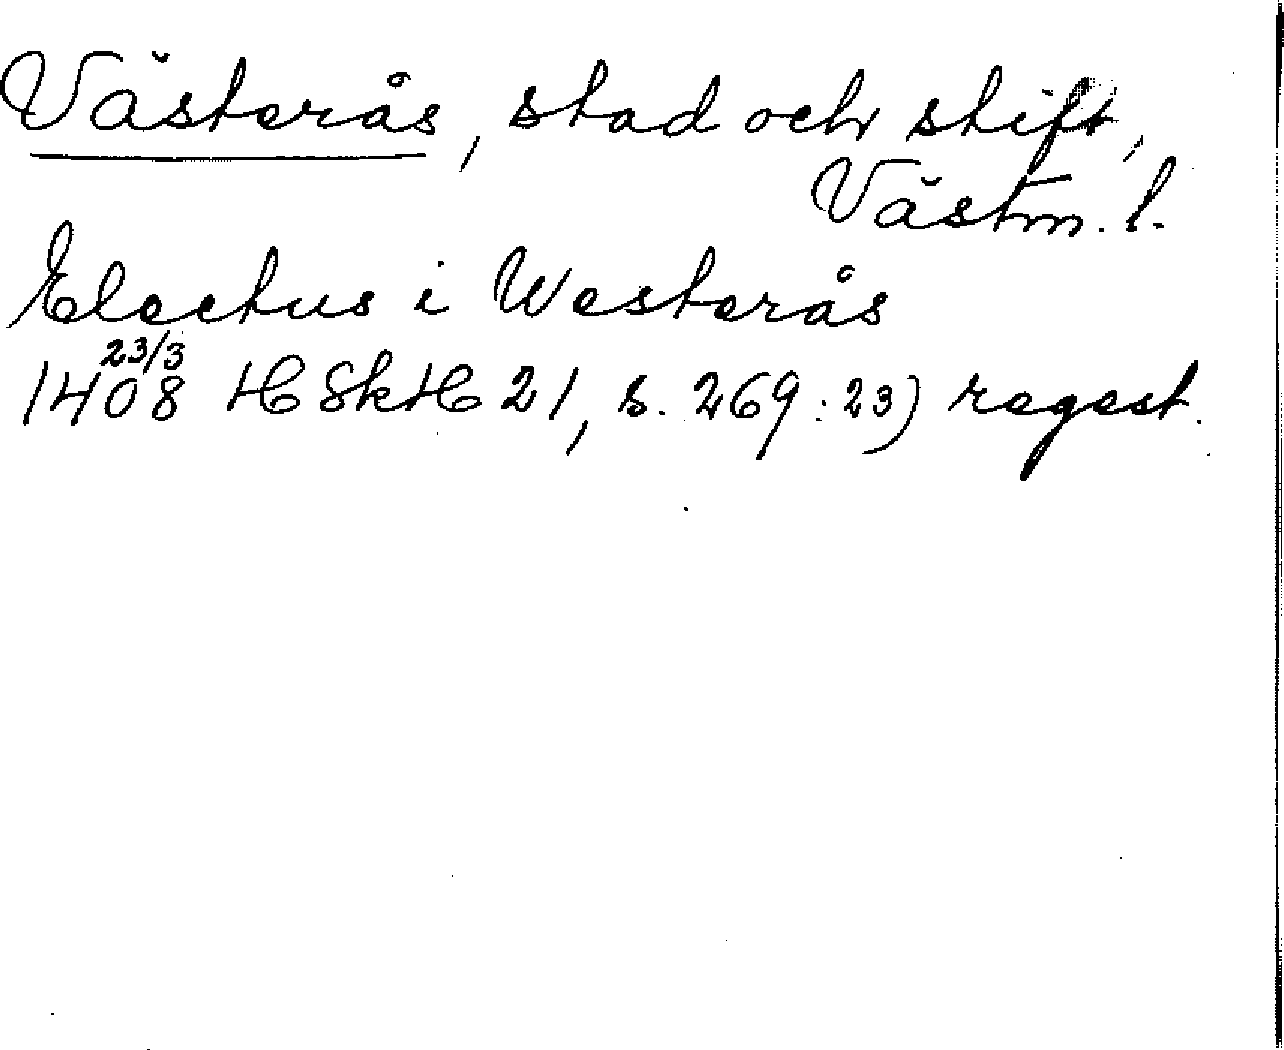 Västerås, stad och stift,
Västm. l.
Electus i Westerås
23/3
1408 HSkH 21, s. 269: 23) regest.